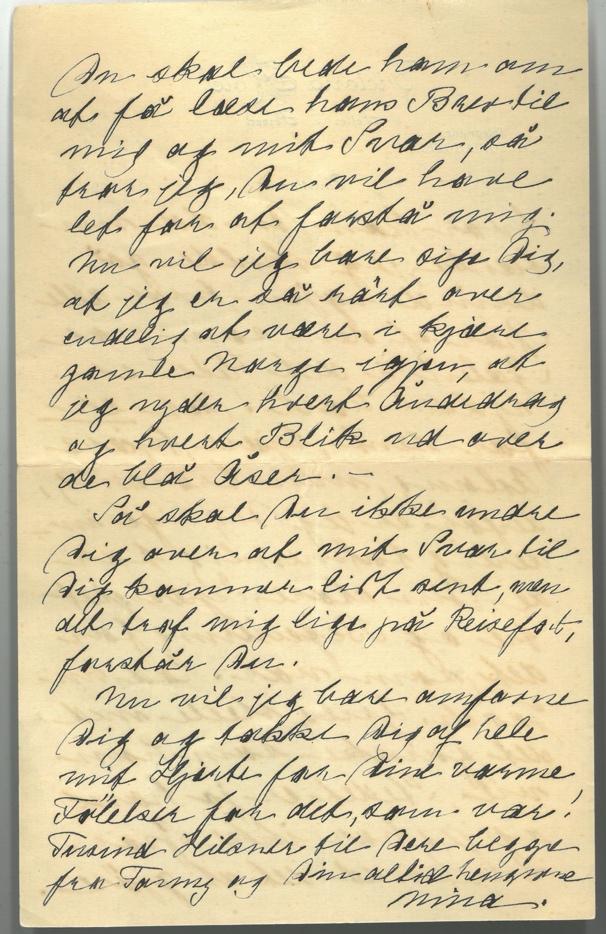 Du skal bede ham om
at få læse hans Brev til
mig og mit Svar, så
tror jeg, Du vil have
let for at forstå mig.
Nu vil jeg bare sige Dig,
at jeg er så rørt over
endelig at være i kjære
gamle Norge igjen, at
jeg nyder hvert Åndedrag
og hvert Blik ud over
de blå Åser. —
Så skal Du ikke undre
Dig over at mit Svar til
Dig kommer lidt sent, men
det traf mig lige på Reisefot,
forstår Du.
Nu vil jeg bare omfavne
Dig og takke Dig af hele
mit Hjerte for Dine varme
Følelser for det, som var!
Tusind Hilsner til Dere begge
fra Tonny og Din altid hengivne
Nina.